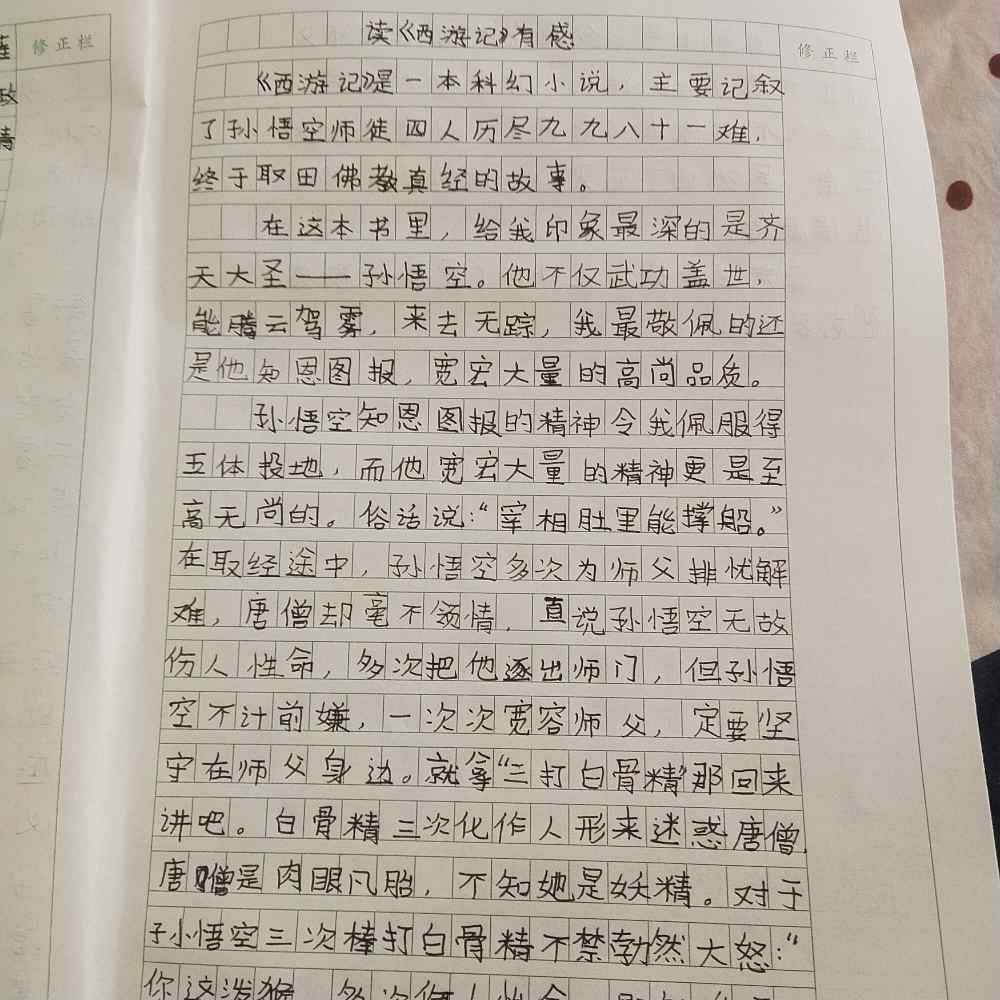 读《西游记》有感
修正栏
修正栏
《西游记》是一本科幻小说，主要记叙
了孙悟空师徒四人历尽九九八十一难，
终于取田佛教真经的故事。
在这本书里，给我印象最深的是齐
天大圣——孙悟空。他不仅武功盖世，
能腾云驾雾，来去无踪，我最敬佩的还
是他知恩图报，宽宏大量的高尚品质。
孙悟空知恩图报的精神令我佩服得
五体投地，而他宽宏大量的精神更是至
高无尚的。俗话说：“宰相肚里能撑船。”
在取经途中，孙悟空多次为师父排忧解
难，唐僧却毫不领情，直说孙悟空无故
伤人性命，多次把他逐出师门，但孙悟
空不计前嫌，一次次宽容师父，定要坚
守在师父身边。就拿“三打白骨精”那回来
讲吧。白骨精三次化作人形来迷惑唐僧，
唐僧是肉眼凡胎，不知她是妖精。对于
子小悟空三次棒打白骨精不禁勃然大怒：“
你这泼猴，多次伤人性命